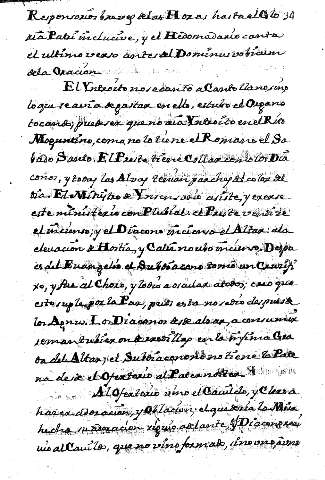 Responsorios breves de las Horas hasta el Glo 34
ria Patri inclusive, y el Hedomadario canta
el ultimo verso antes del Dominus vobiscum
de la Oracion
El Yntroito no se canto a Canto llano sino
lo que se avia de gastar en ello, estubo el Organo
tocando; puede ser que no aia Yntroito en el Rito
Moguntino, como no lo tiene el Romano el Sa
bado Santo. El Preste tiene Collar con los Dia
conos, y todas las Alvas tenian paños del color del
dia. El Ministro de Yncensario asiste, y exerce
este ministerio con Plubial: el Preste vendice
el incienso; y el Diacono incienso el Altar: a la
elevacion de Hostia, y Caliz no ubo incienso. Despu
es del Evangelio el Subdiacono tomo un Crucifi
xo, y fue al Choro, y lo dio a osculear a todos; creo que
esto suple por la Paz, pues esta no se dio despues de
los Agnus. Los Diaconos desde alzar, a consumir
se mantubieron de rodillas en la infima Gra
da del Altar; el Subdiacono no tiene la Pate
na desde el Ofertorio al Pater noster.
Al Ofertorio vino el Cavildo, y Clero a
hazer adoracion, y Oblacion; el que decia la Misa
hecha su oracion siguio delante y Diacono
vio al Cavildo, que no vino formado, sino uno